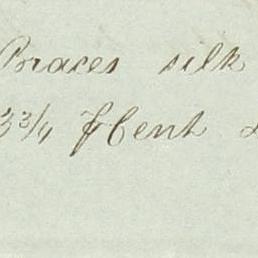 Braces silk
33/4 fCent